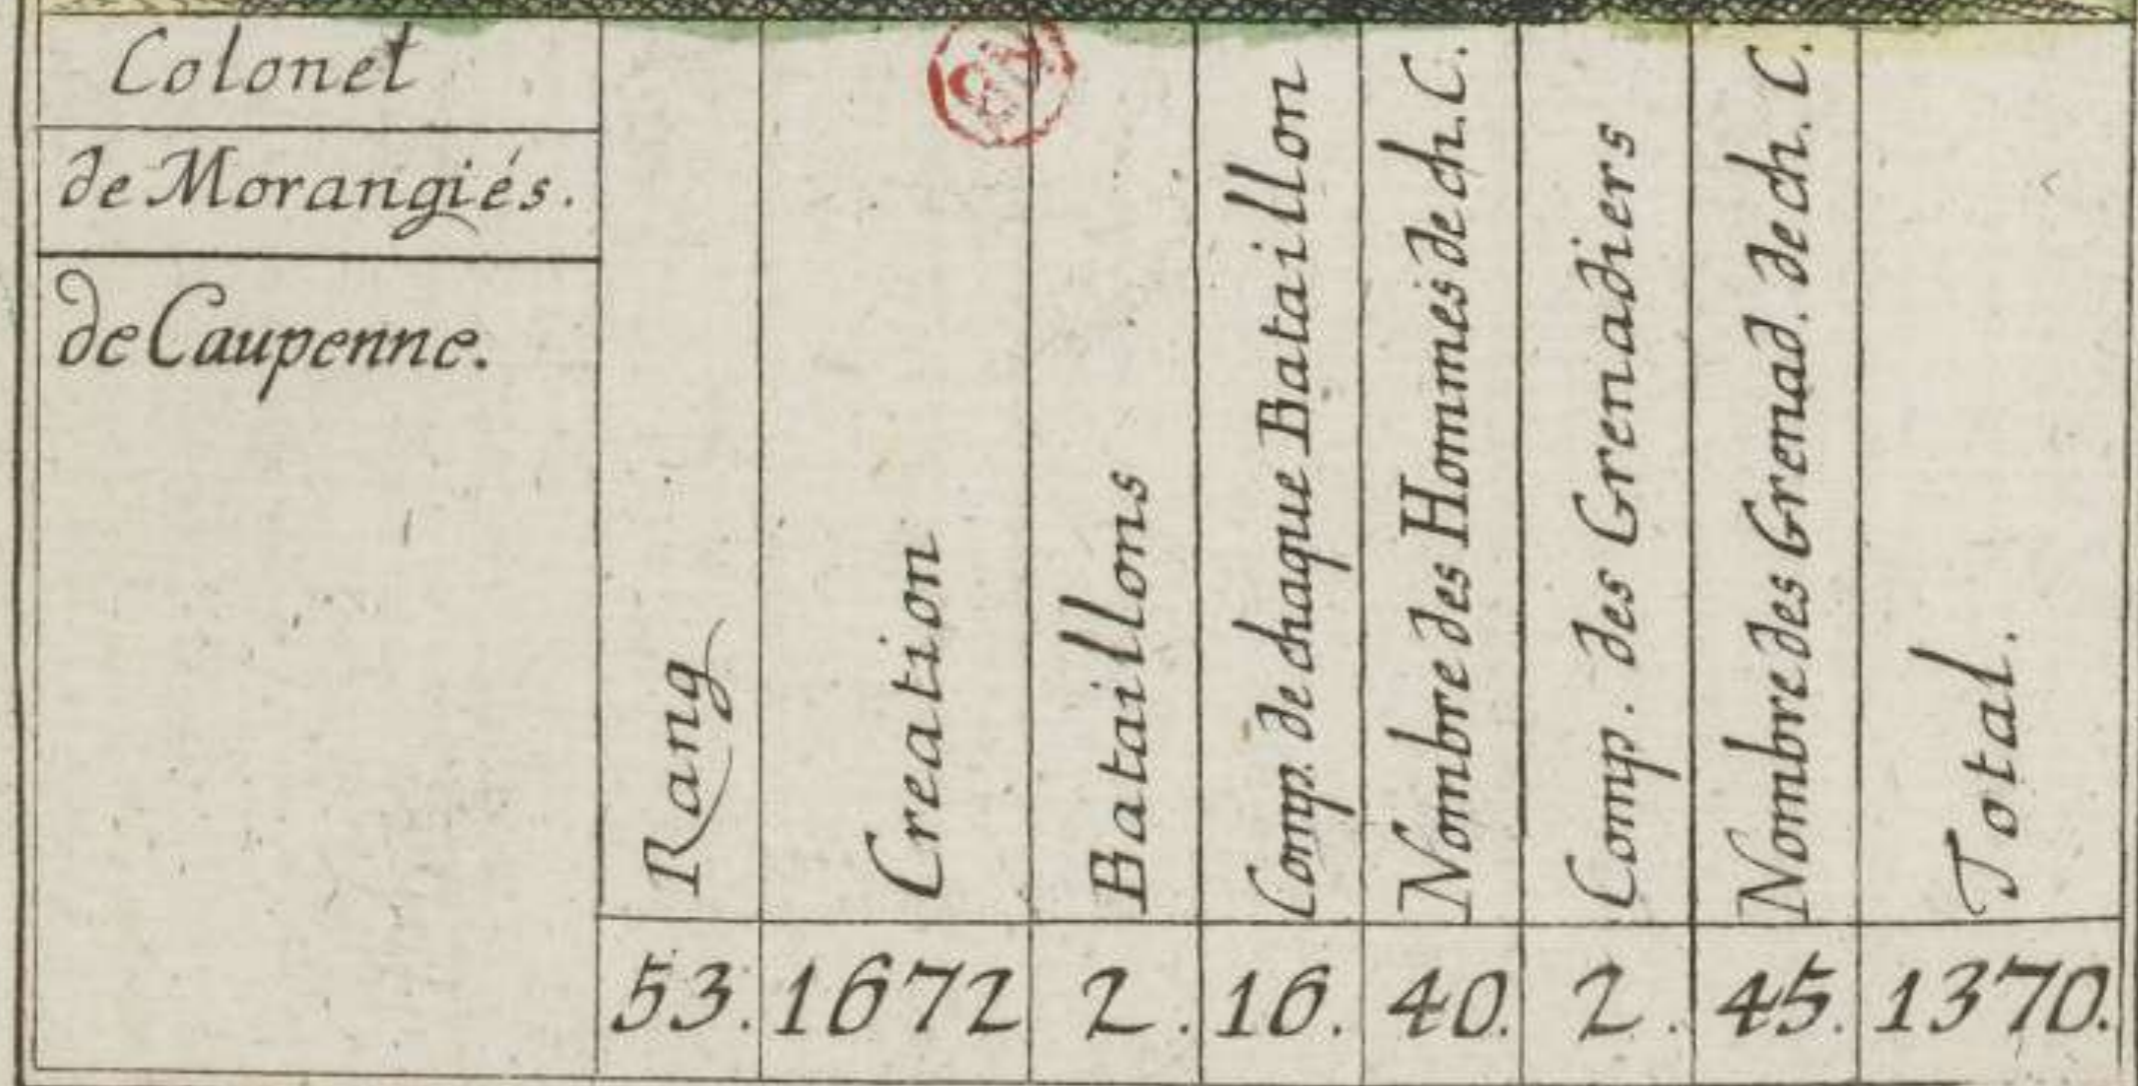 Colonel
de Morangiés.
de Caupenne.
Rang
Creation
Bataillons
Comp. de chaque Bataillon
Nombre des Hommes de ch. C.
Comp. des Grenadiers
Nombre des Grenad. de ch. C.
Total.
53. 1672 2. 16. 40. 2. 45. 1370.